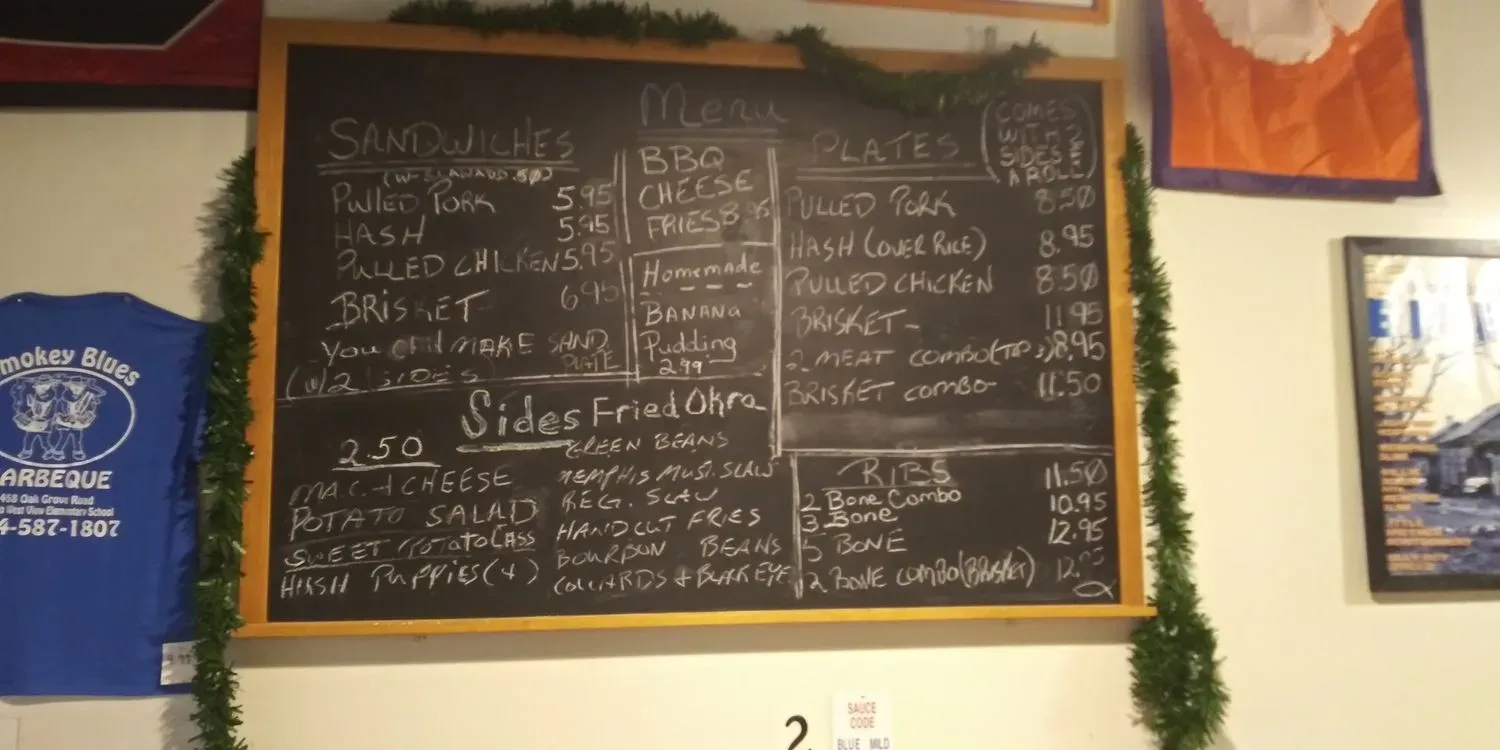 Menu
SANDWICHES
PULLED PORK 5.95
HASH 5.95
PULLED CHICKEN 5.95
BRISKET 6.95
YOU MAKE SAND PLATE
(W/2 SIDES)
BBQ
CHEESE
FRIES 8.95
Homemade
BANANA
Pudding
2.99
PLATES
(COMES
WITH 2
SIDES &
A ROLL)
PULLED PORK 8.50
HASH (OVER RICE) 8.95
PULLED CHICKEN 8.50
BRISKET- 11.95
2 MEAT COMBO 8.95
BRISKET COMBO- 11.50
Sides
2.50
MAC + CHEESE
POTATO SALAD
SWEET POTATO CASS
HUSH PUPPIES (4)
Fried Okra
GREEN BEANS
MEMPHIS MUST. SLAW
REG. SLAW
HANDCUT FRIES
BOURBON BEANS
COLLARDS + BLACKEYE
RIBS
2 Bone Combo 11.50
3 Bone 10.95
5 BONE 12.95
2 BONE COMBO (BRISKET)
mokey Blues
ARBEQUE
458 Oak Grove Road
West View Elementary School
4-587-1807
9.99
2
SAUCE
CODE
BLUE MILD